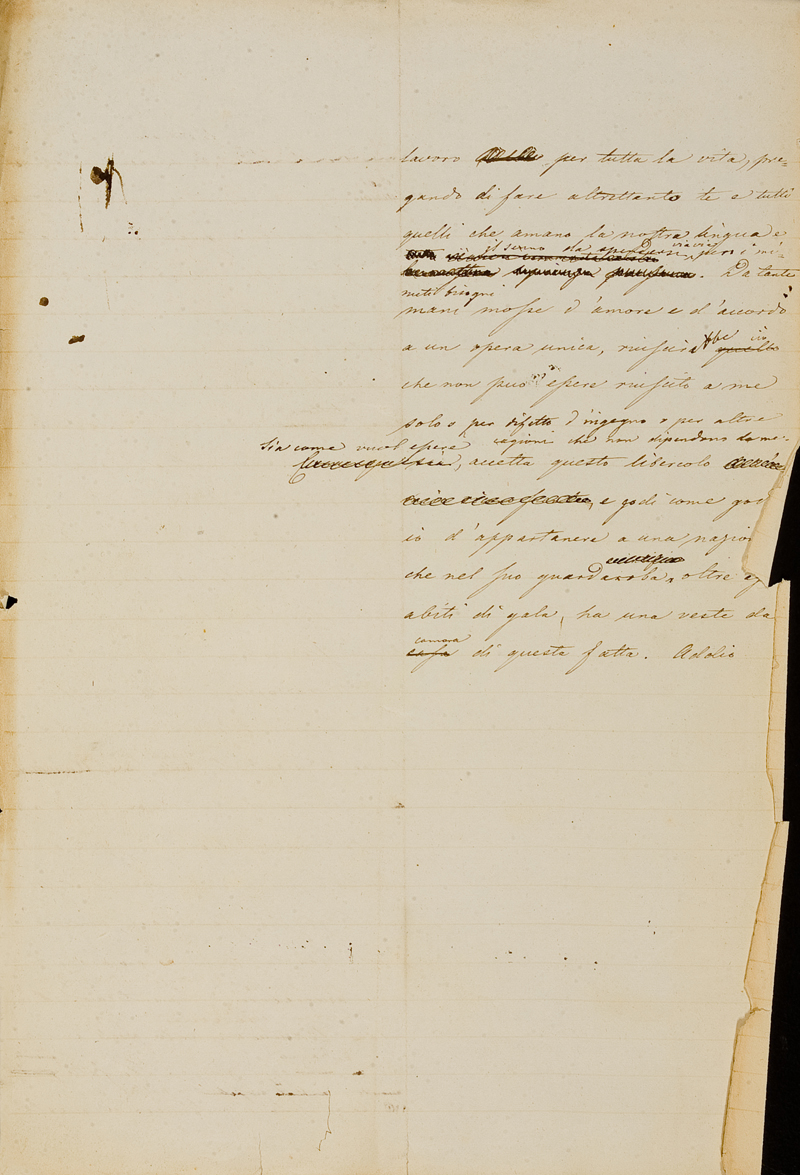 lavoro per tutta la vita, pre=
gando di fare altrettanto te e tutti
quelli che amano la nostra lingua e
il senno da spendere via via per i mi-
nuti bisogni
. Da tante
mani mosse d'amore e d'accordo
a un opera unica, riuscirebbe ciò quello
che non può essere riuscito a me
solo o per difetto d'ingegno o per altre
cagioni che non dipendono da me.
Sia come vuol essere
Comunque sia, accetta questo libercolo
, e godi come god
io d'appartenere a una nazion
che nel suo guardaroba, oltre
abiti di gala, ha una veste da
camera
casa di questa fatta. Addio